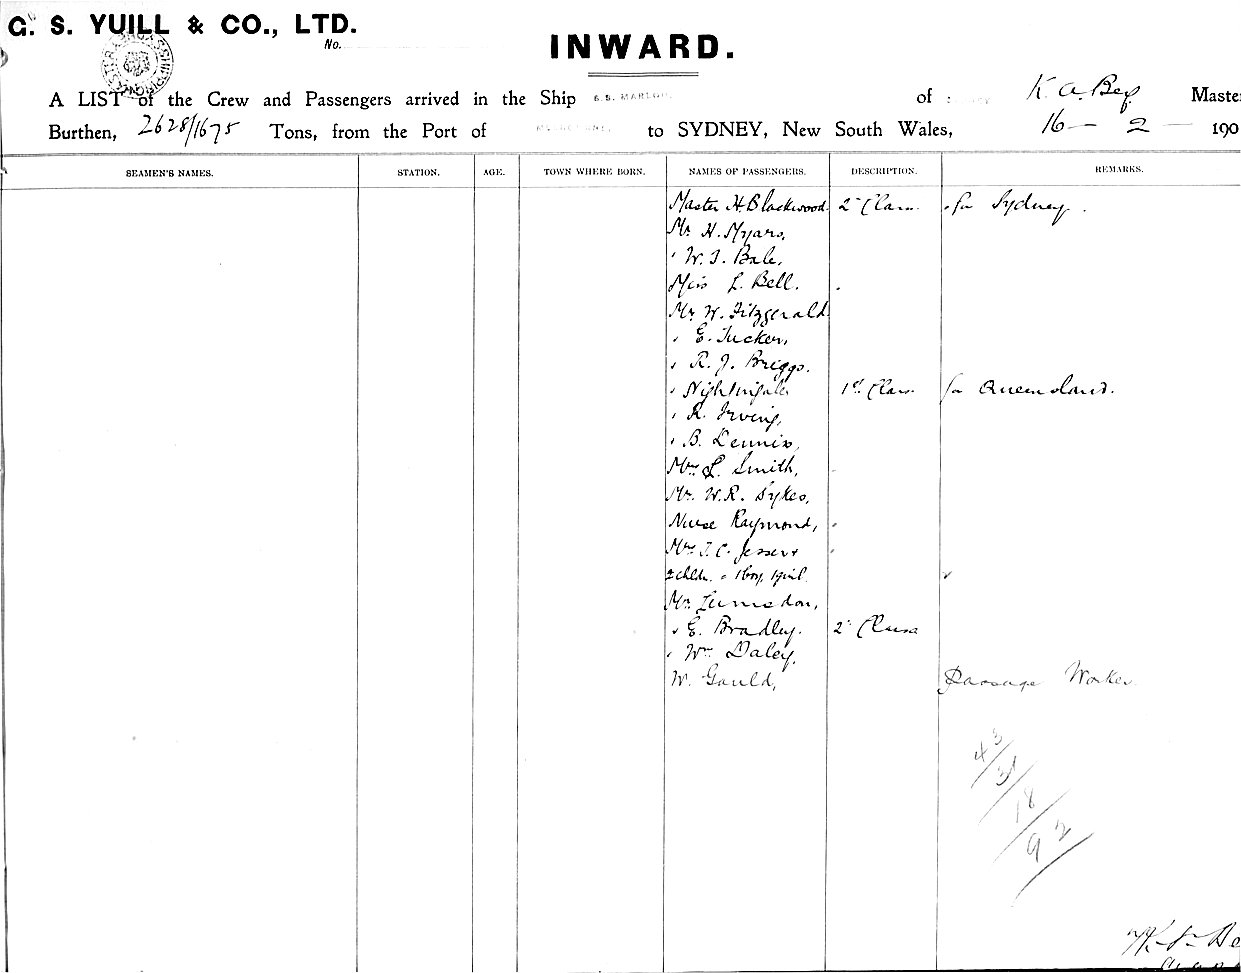 G. S. YUILL & CO., LTD.
No.
INWARD.
A LIST of the Crew and Passengers arrived in the Ship S.S. MARLOO, of K. A. Bey. Maste
Burthen, 2628/1675 Tons, from the Port of to SYDNEY, New South Wales, 16 — 2 — 190
SEAMEN'S NAMES. STATION. AGE. TOWN WHERE BORN. NAMES OF PASSENGERS. DESCRIPTION. REMARKS.
Master H. Blackwood. 2 Class. for Sydney.
Mr H. Myars,
" W. J. Bale,
Miss L. Bell.
Mr W. Fitzgerald.
" E. Tucker,
" R. J. Briggs.
" Nightingale 1st Class for Queensland.
" R. Irving,
" B. Dennis,
Mrs L. Smith,
Mr. W. R. Sykes,
Nurse Raymond,
Mrs J. C. Jesser &
2 chldn. 1 boy, 1 girl.
Mr. Lumsdon,
" E. Bradley. 2 Class
" Wm Daley,
W. Gauld, Passage Worker
43
31
18
92